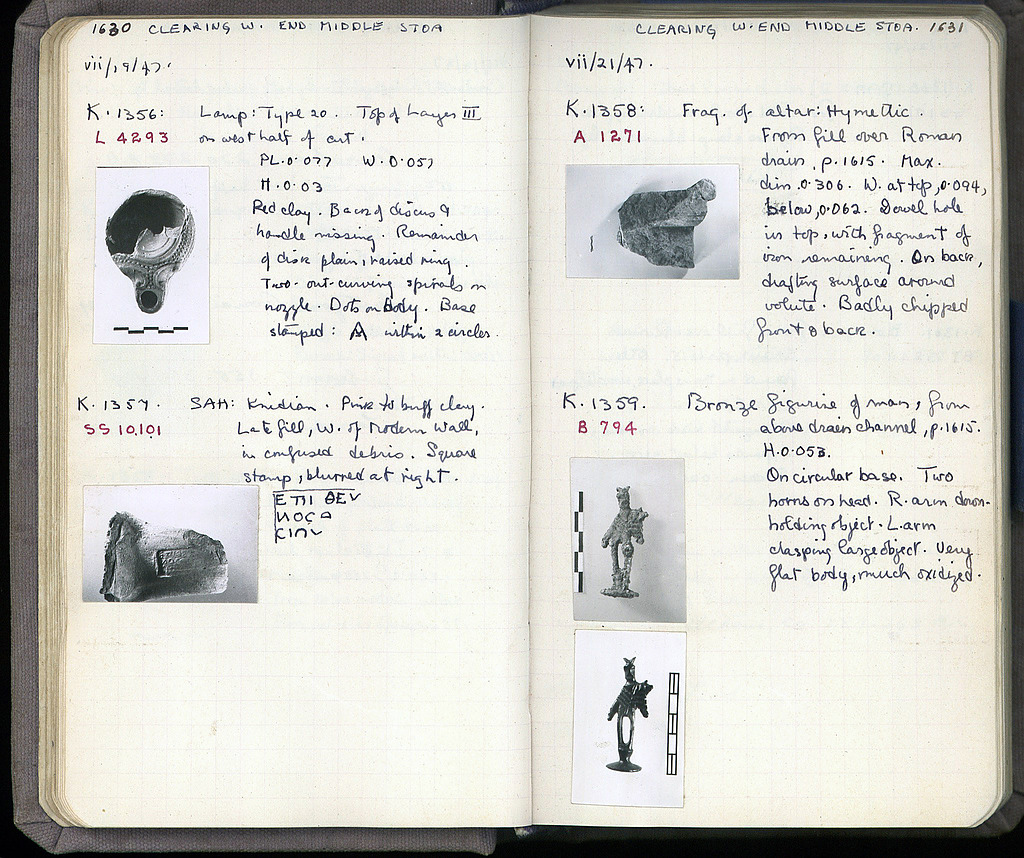 1630 CLEARING W. END MIDDLE STOA
vii/19/47.
K. 1356: Lamp: Type 20. Top of Layer III
L 4293 on west half of cut.
PL. 0.077 W. 0.057
H. 0.03
Red clay. Back of discus &
handle missing. Remainder
of disk plain, raised ring.
Two out-curving spirals on
nozzle. Dots on Body. Base
stamped: A within 2 circles.
K. 1357. SAH: Knidian. Pink to buff clay.
SS 10,101 Late fill, W. of Modern Wall,
in confused debris. Square
stamp, blurred at right.
ΕΠΙ ΘΕV
ΝΟC
ΚΙΠV
CLEARING W. END MIDDLE STOA. 1631
vii/21/47.
K. 1358: Frag. of altar: Hymettic.
A 1271 From fill over Roman
drain, p. 1615. Max.
dim. 0.306. W. at top, 0.094,
below, 0.062. Dowel hole
in top, with fragment of
iron remaining. On back,
drafting surface around
volute. Badly chipped
front & back.
K. 1359. Bronze figurine of man, from
B 794 above drain channel, p. 1615.
H. 0.053.
On circular base. Two
horns on head. R. arm down-
holding object. L. arm
clasping large object. Very
flat body, much oxidized.